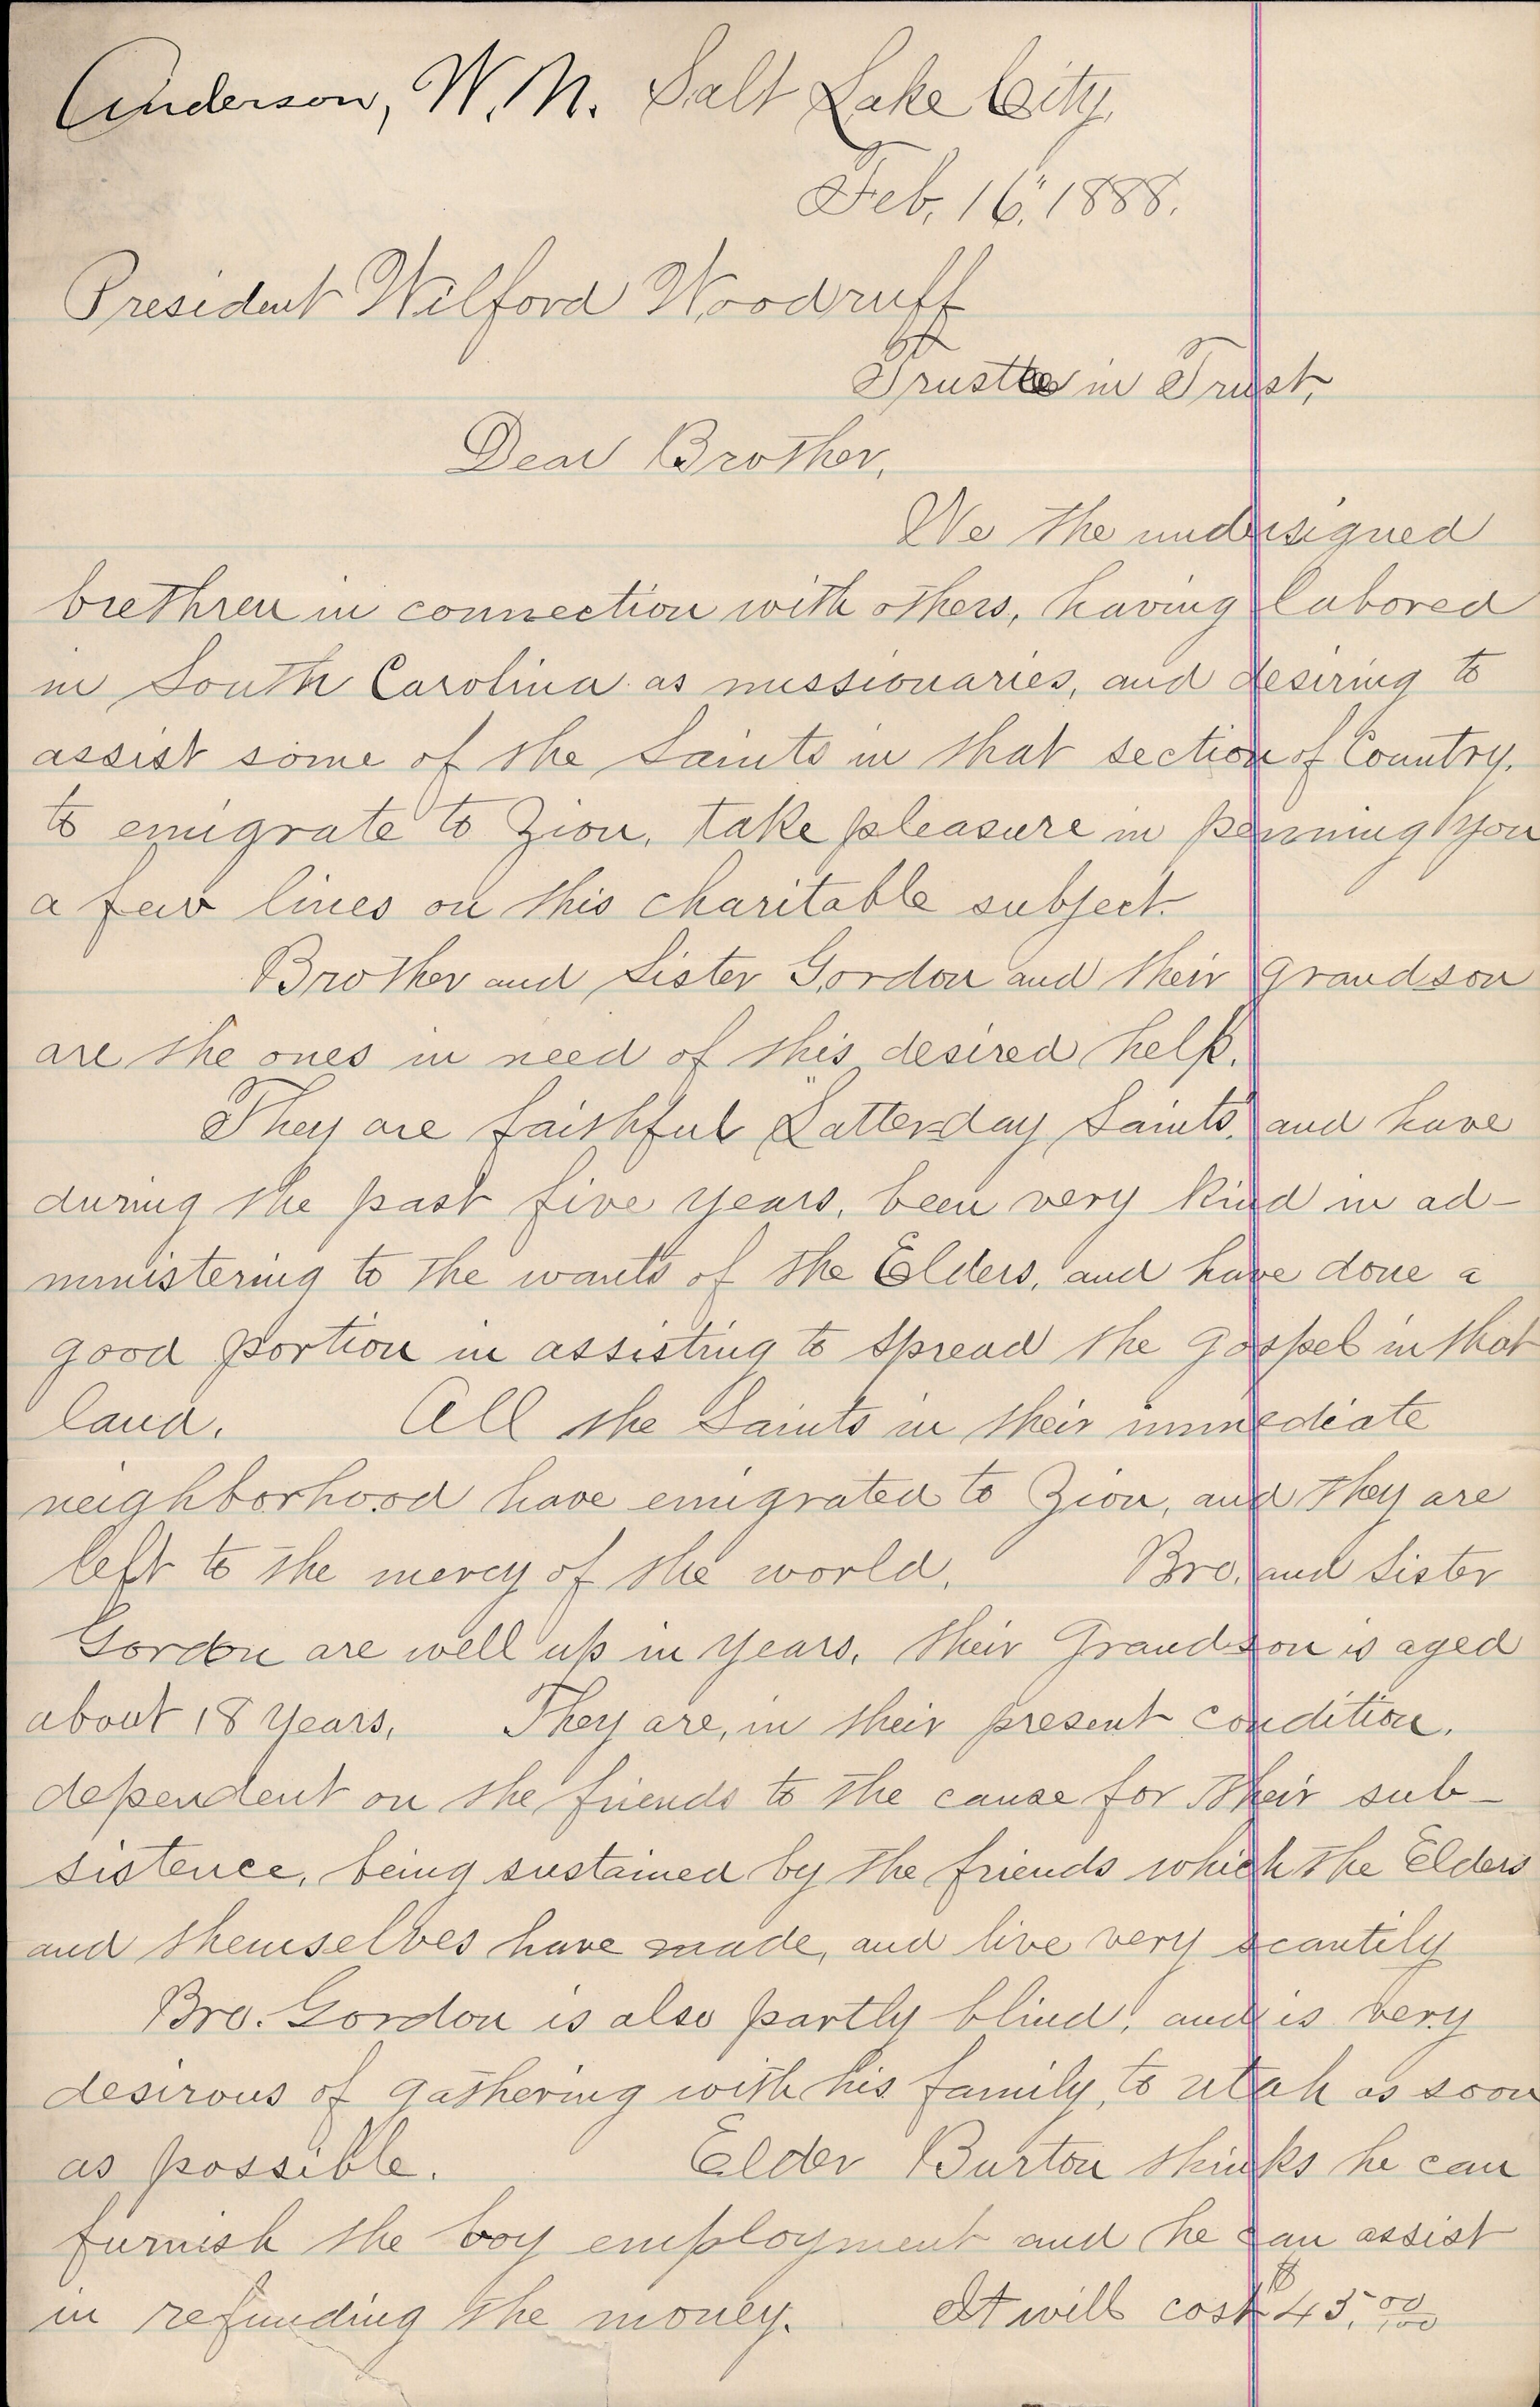 Anderson, W. N. Salt Lake City,
Feb. 16", 1888.
President Wilford Woodruff
Trustee in Trust,
Dear Brother,
We the undersigned
brethren in connection with others, having labored
in South Carolina as missionaries, and desiring to
assist some of the Saints in that section of Country,
to emigrate to Zion, take pleasure in penning you
a few lines on this charitable subject.
Brother and Sister Gordon and their grandson
are the ones in need of this desired help.
They are faithful "Latter-day Saints", and have
during the past five years, been very kind in ad-
ministering to the wants of the Elders, and have done a
good portion in assisting to spread the gospel in that
land. All the Saints in their immediate
neighborhood have emigrated to Zion, and they are
left to the mercy of the world. Bro. and Sister
Gordon are well up in years, their Grandson is aged
about 18 years, They are, in their present condition,
dependent on the friends to the cause for their sub-
sistence, being sustained by the friends which the Elders
and themselves have made, and live very scantily
Bro. Gordon is also partly blind, and is very
desirous of gathering with his family, to utah as soon
as possible. Elder Burton thinks he can
furnish the boy employment and he can assist
in refunding the money. It will cost $45.00/100